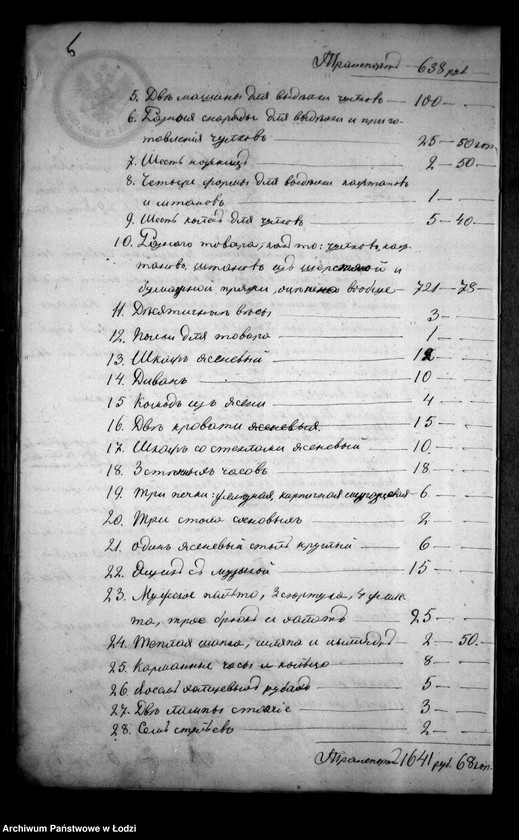 5
Транспортъ 638 руб.
5. Двѣ машины для выдѣлки чулковъ — 100 —
6. Разные снаряды для выдѣлки и приго-
товленія чулковъ — 25 — 50 коп.
7. Шесть ножницъ — 2 — 50 —
8. Четыре формы для выдѣлки кафтановъ
и штановъ — 1 —
9. Шесть для чулковъ — 5 — 40 —
10. Разнаго товара, какъ то: чулковъ, каф-
тановъ, штановъ изъ шерстяной и
бумажной пряжи, оцѣнено вообще — 721 — 78 —
11. Десятичные вѣсы — 3 —
12. Полки для товара — 1 —
13. Шкафъ ясеневый — 12 —
14. Диванъ — 10 —
15 Комодъ изъ ясени — 4 —
16. Двѣ кровати ясеневыя — 15 —
17. Шкафъ со стеклами ясеневый — 10 —
18. 3 стѣнныхъ часовъ — 18 —
19. Три печки: желѣзная, кирпичная — 6 —
20. Три стола сосновыхъ — 2 —
21. Одинъ ясеневый столъ круглый — 6 —
22. Ящикъ съ музыкой — 15 —
23. Мужское пальто, 2 сюртука, 4 жиле-
та, трое брюкъ и халатъ — 25 —
24. Теплая шапка, шляпа и — 2 — 50 —
25. Карманные часы и кольцо — 8 —
26. Восемь рубахъ — 5 —
27. Двѣ лампы — 3 —
28. Семь — 2 —
Транспортъ 1641 руб. 68 коп.
Archiwum Państwowe w Łodzi